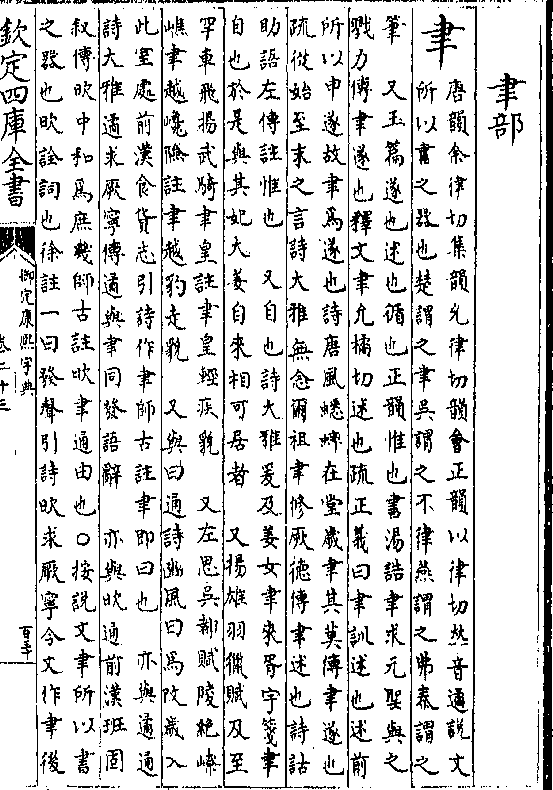 聿部
聿
唐韻余律切集韻允律切韻會正韻以律切𠀤音遹說文
所以書之器也楚謂之聿吳謂之不律燕謂之弗秦謂之
筆　又玉篇遂也述也循也正韻惟也書湯誥聿求元聖與之
戮力傳聿遂也釋文聿允橘切述也疏正義曰聿訓述也述前
所以申遂故聿爲遂也詩唐風蟋蟀在堂歲聿其莫傳聿遂也
疏從始至末之言詩大雅無念爾祖聿修厥德傳聿述也詩詁
助語左傳註惟也　又自也詩大雅爰及姜女聿來胥宇箋聿
自也於是與其妃大姜自來相可居者　又揚雄羽獵賦及至
罕車飛揚武騎聿皇註聿皇輕疾貌　又左思吳都賦陵絶嶚
嶕聿越巉險註聿越豹走貌　又與曰通詩豳風曰爲改歲入
此室處前漢食貨志引詩作聿師古註聿卽曰也　亦與遹通
詩大雅遹求厥寧傳遹與聿同發語辭　亦與吹通前漢班固
叙傳吹中和爲庶幾師古註吹聿通由也○按說文聿所以書
之器也吹詮詞也徐註一曰發聲引詩吹求厥寧今文作聿後
欽定四庫全書
御定康熙字典
卷二十三